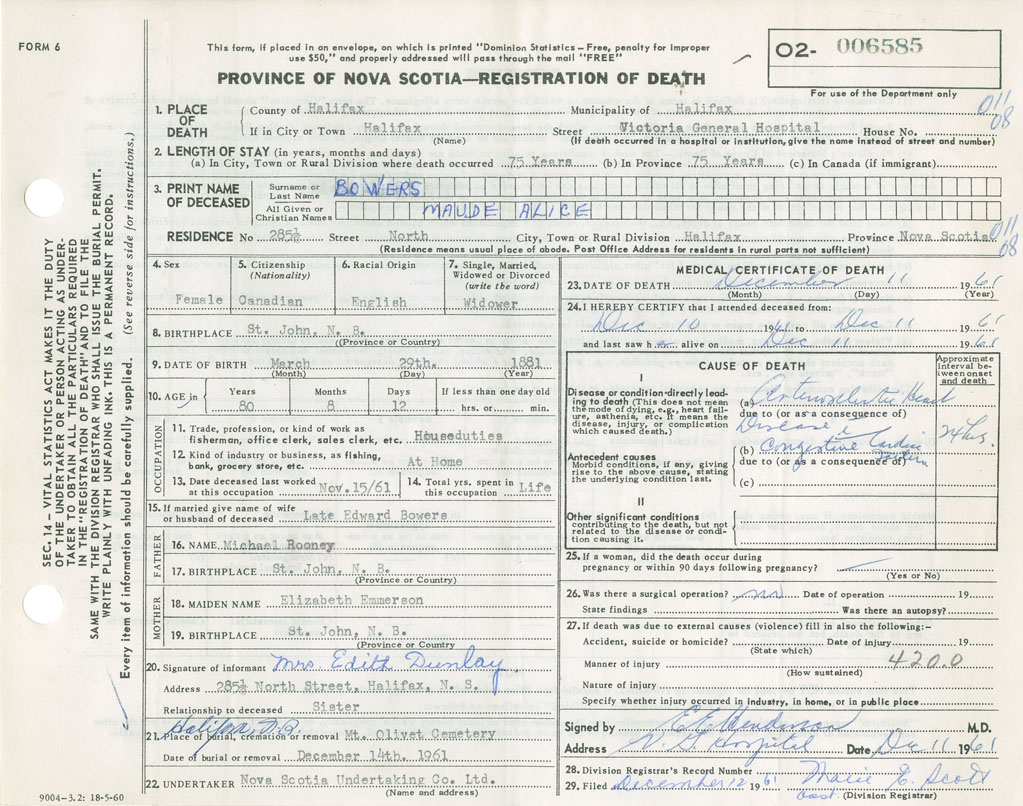 FORM 6
This form, if placed in an envelope, on which is printed "Dominion Statistics – Free, penalty for improper
use $50," and properly addressed will pass through the mail "FREE"
PROVINCE OF NOVA SCOTIA—REGISTRATION OF DEATH
O2- 006585
For use of the Department only
011
08
1. PLACE OF DEATH
County of Halifax Municipality of Halifax
If in City or Town Halifax Street Victoria General Hospital House No.
(Name) (If death occurred in a hospital or institution, give the name instead of street and number)
2. LENGTH OF STAY (in years, months and days)
(a) In City, Town or Rural Division where death occurred 75 Years (b) In Province 75 Years (c) In Canada (if immigrant)
3. PRINT NAME OF DECEASED
Surname or Last Name BOWERS
All Given or Christian Names MAUDE ALICE
011
08
RESIDENCE No 285½ Street North City, Town or Rural Division Halifax Province Nova Scotia
(Residence means usual place of abode. Post Office Address for residents in rural parts not sufficient)
4. Sex
Female
5. Citizenship
(Nationality)
Canadian
6. Racial Origin
English
7. Single, Married, Widowed or Divorced
(write the word)
Widower
8. BIRTHPLACE St. John, N. B.
((Province or Country)
9. DATE OF BIRTH March 29th. 1881
(Month) (Day) (Year)
10. AGE in Years 80 Months 8 Days 12 If less than one day old hrs. or min.
OCCUPATION
11. Trade, profession, or kind of work as
fisherman, office clerk, sales clerk, etc. Houseduties
12. Kind of industry or business, as fishing,
bank, grocery store, etc. At Home
13. Date deceased last worked
at this occupation Nov.15/61
14. Total yrs. spent in
this occupation Life
15. If married give name of wife
or husband of deceased Late Edward Bowers
FATHER
16. NAME Michael Rooney
17. BIRTHPLACE St. John, N. B.
(Province or Country)
MOTHER
18. MAIDEN NAME Elizabeth Emmerson
19. BIRTHPLACE St. John, N. B.
(Province or Country
20. Signature of informant Mrs. Edith Dunlay
Address 285½ North Street, Halifax, N. S.
Relationship to deceased Sister
21. Place of burial, cremation or removal Mt. Olivet Cemetery
Halifax,
Date of burial or removal December 14th. 1961
22. UNDERTAKER Nova Scotia Undertaking Co. Ltd.
(Name and address)
MEDICAL CERTIFICATE OF DEATH
23. DATE OF DEATH December 11 1961
(Month) (Day) (Year)
24. I HEREBY CERTIFY that I attended deceased from:
Dec 10 1961 to Dec 11 1961
and last saw her alive on Dec 11 1961
CAUSE OF DEATH
Approximate interval between onset and death
I
Disease or condition directly leading
to death (This does not mean
the mode of dying, e.g., heart failure,
asthenia, etc. It means the
disease, injury, or complication
which caused death.)
(a) Arteriosclerotic Heart
due to (or as a consequence of)
Disease c
Antecedent causes
Morbid conditions, if any, giving
rise to the above cause, stating
the underlying condition last.
(b) Congestive Cardiac
24 hrs.
due to (or as a consequence of)
(c)
II
Other significant conditions
contributing to the death, but not
related to the disease or condition
causing it.
25. If a woman, did the death occur during
pregnancy or within 90 days following pregnancy?
(Yes or No)
26. Was there a surgical operation? no Date of operation 19
State findings Was there an autopsy?
27. If death was due to external causes (violence) fill in also the following:-
Accident, suicide or homicide? Date of injury 19
(State which)
Manner of injury 420.0
(How sustained)
Nature of injury
Specify whether injury occurred in industry, in home, or in public place
Signed by E F Henderson M.D.
Address V. G. Hospital Date Dec 11 1961
28. Division Registrar's Record Number
29. Filed December 12 1961 Marie E. Scott
(Division Registrar)
SEC. 14 – VITAL STATISTICS ACT MAKES IT THE DUTY
OF THE UNDERTAKER OR PERSON ACTING AS UNDERTAKER
TO OBTAIN ALL THE PARTICULARS REQUIRED
IN THE "REGISTRATION OF DEATH" AND TO FILE THE
SAME WITH THE DIVISION REGISTRAR WHO SHALL ISSUE THE BURIAL PERMIT.
WRITE PLAINLY WITH UNFADING INK. THIS IS A PERMANENT RECORD.
Every item of information should be carefully supplied. (See reverse side for instructions.)
9004–3.2: 18-5-60